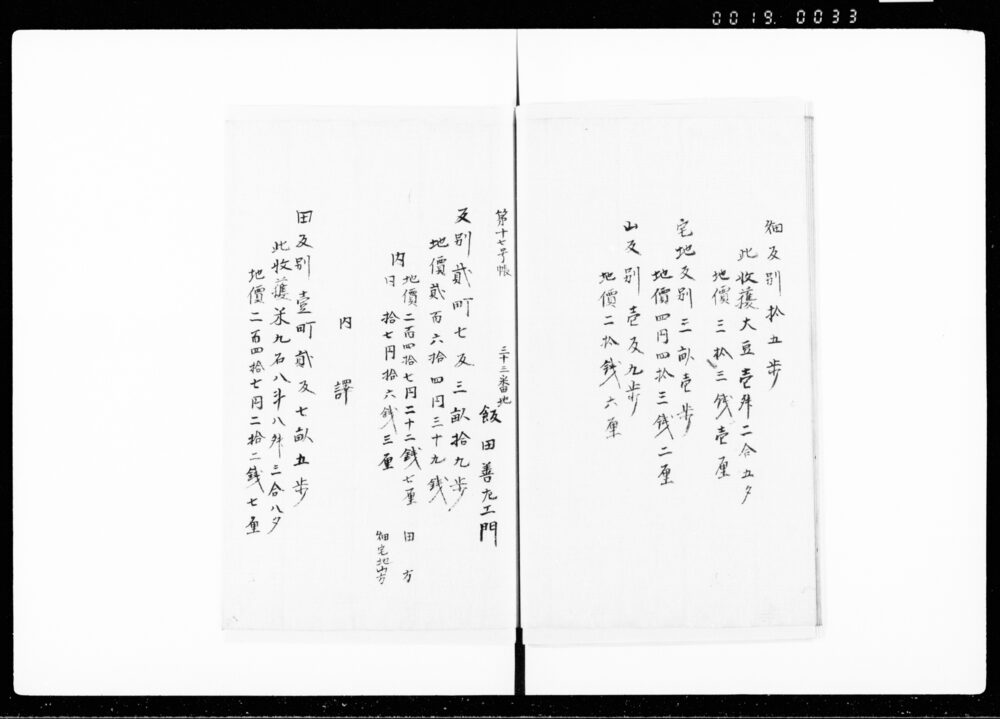 0019. 0033
畑反別拾五歩
此收獲大豆壱舛二合五夕
地價三拾三銭壱厘
宅地反別三畝壱歩
地價四円四拾三銭二厘
山反別壱反九歩
地價二拾銭六厘
第十七号帳
三十三番地
飯田善左エ門
反別貳町七反三畝拾九歩
地價貳百六拾四円三十九銭
内
地價二百四拾七円二十二銭七厘 田方
日 拾七円拾六銭三厘 畑宅地山方
内譯
田反別壹町貳反七畝五歩
此收獲米九石八斗八舛三合八夕
地價二百四拾七円二拾二銭七厘